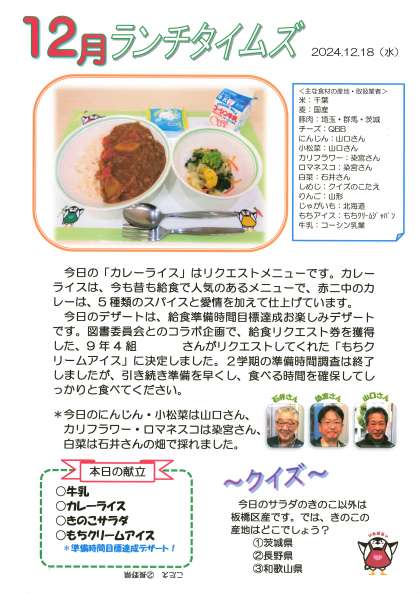 12月ランチタイムズ
2024.12.18（水）
＜主な食材の産地・取扱業者＞
米：千葉
麦：国産
豚肉：埼玉・群馬・茨城
チーズ：QBB
にんじん：山口さん
小松菜：山口さん
カリフラワー：染宮さん
ロマネスコ：染宮さん
白菜：石井さん
しめじ：クイズのこたえ
りんご：山形
じゃがいも：北海道
もちアイス：もちｸﾘｰﾑｼﾞｬﾊﾟﾝ
牛乳：コーシン乳業
今日の「カレーライス」はリクエストメニューです。カレー
ライスは、今も昔も給食で人気のあるメニューで、赤二中のカ
レーは、５種類のスパイスと愛情を加えて仕上げています。
今日のデザートは、給食準備時間目標達成お楽しみデザート
です。図書委員会とのコラボ企画で、給食リクエスト券を獲得
した、９年４組　　　さんがリクエストしてくれた「もちク
リームアイス」に決定しました。２学期の準備時間調査は終了
しましたが、引き続き準備を早くし、食べる時間を確保してし
っかりと食べてください。
＊今日のにんじん・小松菜は山口さん、
カリフラワー・ロマネスコは染宮さん、
白菜は石井さんの畑で採れました。
石井さん
染宮さん
山口さん
本日の献立
○牛乳
○カレーライス
○きのこサラダ
○もちクリームアイス
＊準備時間目標達成デザート！
～クイズ～
今日のサラダのきのこ以外は
板橋区産です。では、きのこの
産地はどこでしょう？
①茨城県
②長野県
③和歌山県
こたえ　②長野県